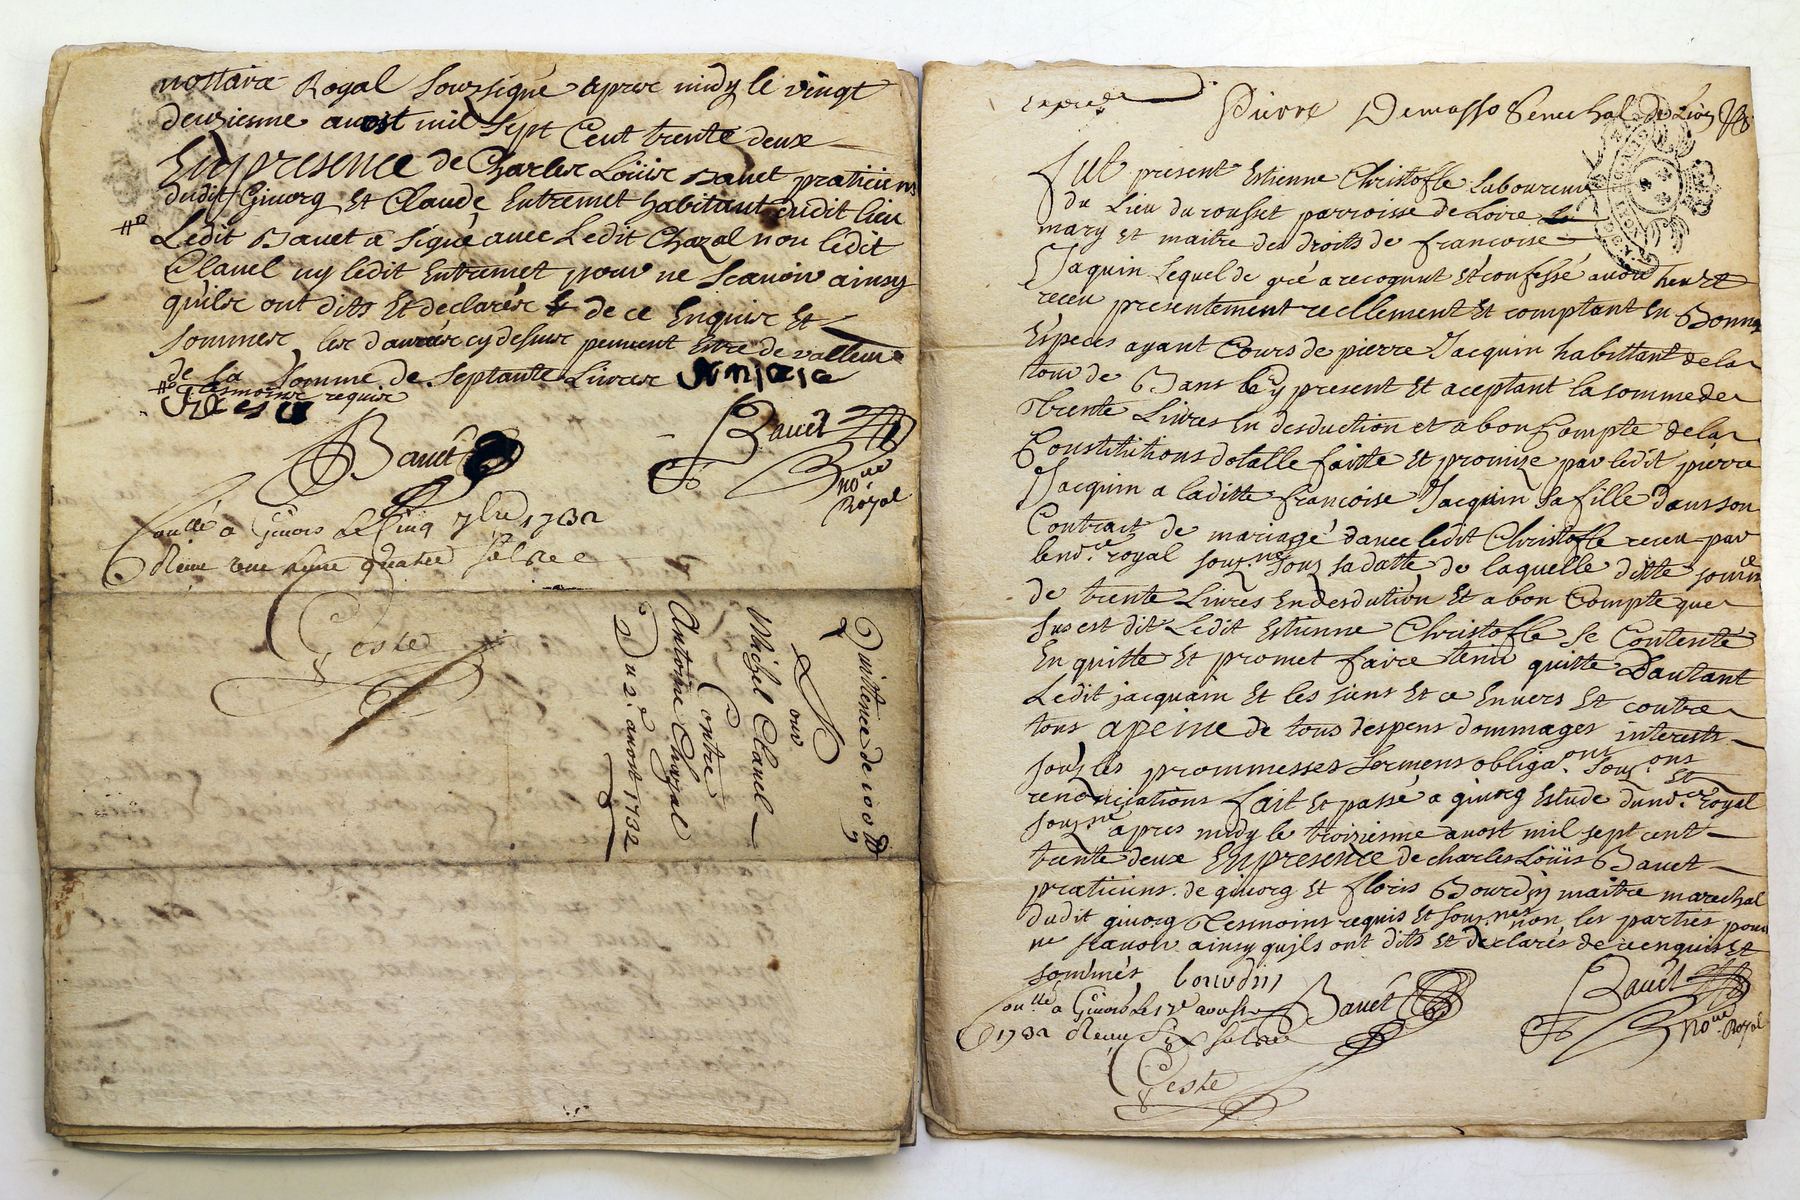 nottaire Royal soussigné apres midy le vingt
deuxiesme auost mil sept Cent trente deux
En presence de Charles Loüis Bauet praticiens
dudit Giuorg Et Claude Entremet habitant dudit lieu
Ledit Bauet a signé auec Ledit Chazal non ledit
Clauel ny ledit Entremet pour ne scauoir ainsy
quils ont dits Et declarés de ce Enquis Et
sommes, les danrées cy dessus peuuent Etre de valleur
de la somme de septante Liures
tesmoins requis
Bauet
Bauet
no.re
Royal
Coullé a Giuors le Cinq 7bre 1732
Reçeu
Geste
Quittence de 100 ll
pour
Michel Clauel
Contre
Antoine Chazal
Du 2.e auost 1732
Pierre Demasso Senechal de Lion
fut present Estienne Christofle Laboureur
du Lieu du rousset parroisse de Loire
mary et maitre des droits de francoise
Jaquin Lequel de gré a recognut et confessé auoir heu et
receu presentement reellement Et comptant En Bonnes
Especes ayant Cours de pierre Jacquin habittant de la
tour de Bans Icy present Et aceptant la somme de
trente Liures En desduction et a bon Compte de la
Constitutions dotalle faitte Et promize par ledit pierre
Jacquin a laditte francoise Jacquin sa fille dans son
Contract de mariage dauec ledit Christofle receu par
le no.re royal souz.ne souz sa datte de laquelle ditte somme
de trente Liures En desdution Et a bon Compte que
sus est dit Ledit Estienne Christofle se Contente
En quitte Et promet faire tenir quitte Dautant
Ledit jacquain Et les siens Et ce Enuers Et contre
tous a peine de tous despens dommages interests
souz les prommesses sermens obliga.ons souz.ons Et
renonciations fait Et passé a giuorg Estude du no.re royal
souz.né apres midy le troiziesme auost mil sept cent
trente deux En presence de charles Loüis Bauet
praticiens de giuorg Et floris Bourdin maitre marechal
dudit giuorg tesmoins requis et souz.nes non les parties pour
ne scauoir ainsy quils ont dits Et declarés de ce enquis Et
sommés, bourdin
Coullé a Giuors le 17e aoust Bauet
1732 Reçeu Six
Bauet
no.re Royal
Geste